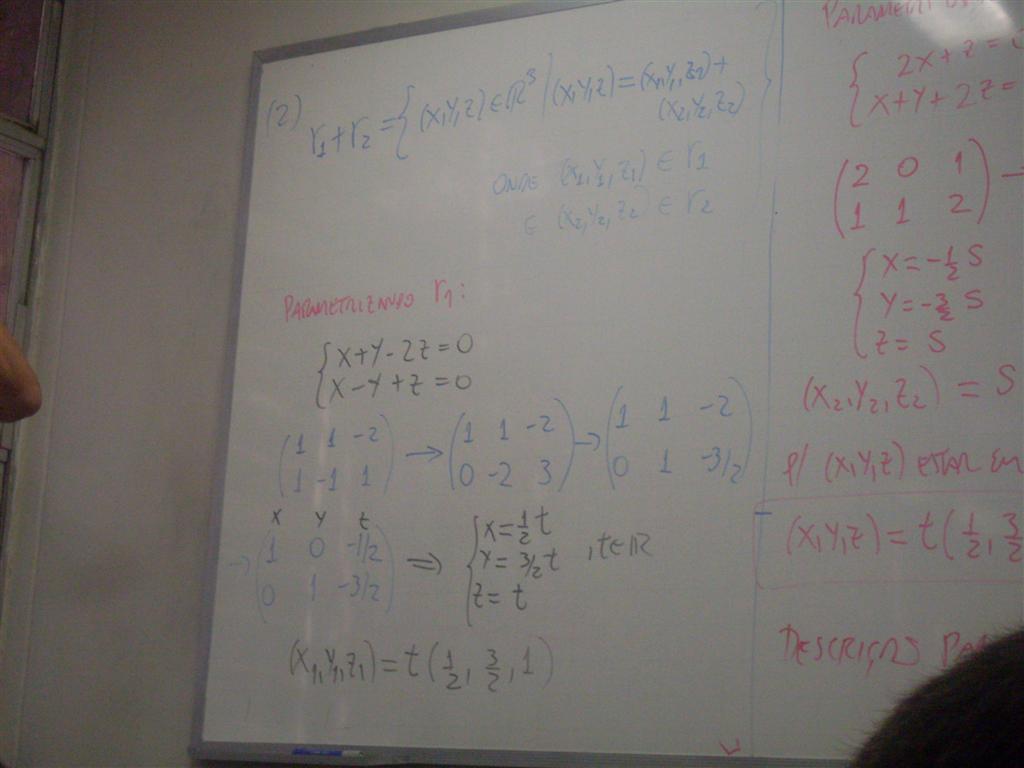 (2) r₁+r₂ = { (x,y,z) ∈ ℝ³ | (x,y,z) = (x₁,y₁,z₂) +
(x₂,y₂,z₂) }
ONDE (x₁,y₁,z₁) ∈ r₁
E (x₂,y₂,z₂) ∈ r₂
PARAMETRIZANDO r₁:
{ x+y-2z=0
x-y+z=0
( 1 1 -2 ) → ( 1 1 -2 ) → ( 1 1 -2 )
( 1 -1 1 ) ( 0 -2 3 ) ( 0 1 -3/2 )
x y z
→ ( 1 0 -1/2 ) ⇒ { x = 1/2 t
( 0 1 -3/2 ) y = 3/2 t , t∈ℝ
z = t
(x₁,y₁,z₁) = t ( 1/2, 3/2, 1 )
{ 2x+z =
x+y+2z =
( 2 0 1 ) →
( 1 1 2 )
{ x = -1/2 s
y = -3/2 s
z = s
(x₂,y₂,z₂) = s
p/ (x,y,z) ESTAR EM
(x,y,z) = t ( 1/2, 3/2
DESCRIÇÃO PA